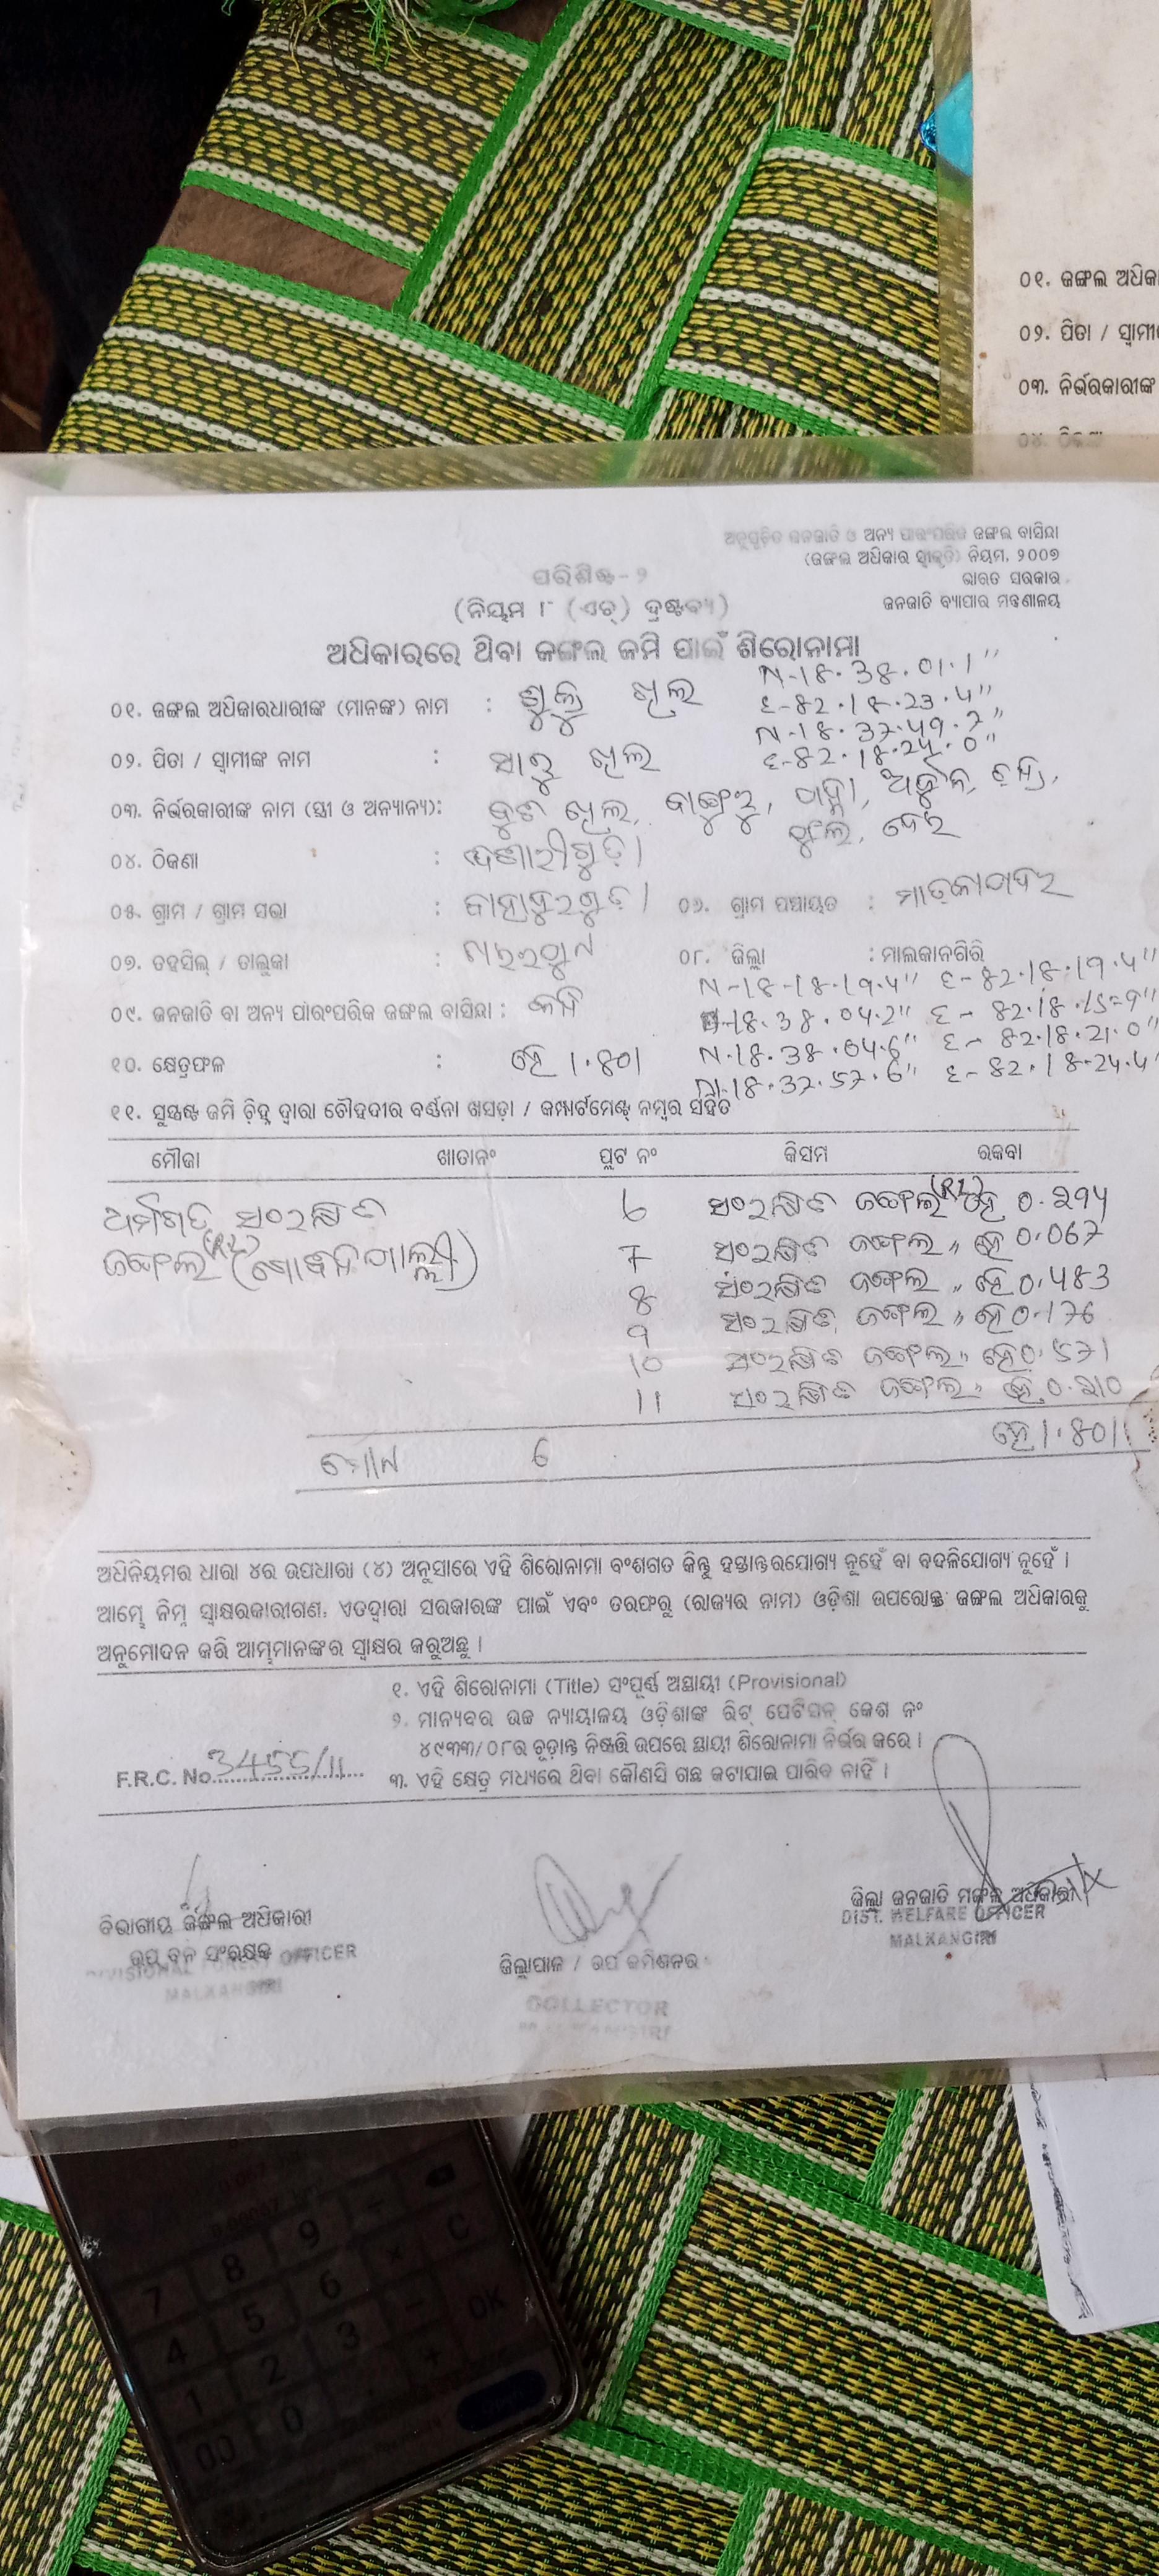 ୦୧. ଜଙ୍ଗଲ ଅଧିକା
୦୨. ପିତା / ସ୍ୱାମୀ
୦୩. ନିର୍ଭରକାରୀଙ୍କ
୦୪. ଠିକଣା
ଅନୁସୂଚିତ ଜନଜାତି ଓ ଅନ୍ୟ ପାରଂପରିକ ଜଙ୍ଗଲ ବାସିନ୍ଦା
(ଜଙ୍ଗଲ ଅଧିକାର ସ୍ୱୀକୃତି) ନିୟମ, ୨୦୦୭
ଭାରତ ସରକାର
ଜନଜାତି ବ୍ୟାପାର ମନ୍ତ୍ରଣାଳୟ
ପରିଶିଷ୍ଟ-୨
(ନିୟମ ୮ (ଏଚ୍) ଦ୍ରଷ୍ଟବ୍ୟ)
ଅଧିକାରରେ ଥିବା ଜଙ୍ଗଲ ଜମି ପାଇଁ ଶିରୋନାମା
N-18.38.01.1"
୦୧. ଜଙ୍ଗଲ ଅଧିକାରଧାରୀଙ୍କ (ମାନଙ୍କ) ନାମ : ଶୁକ୍ରୁ ଖିଲ E-82.18.23.4"
N-18.37.49.7"
୦୨. ପିତା / ସ୍ୱାମୀଙ୍କ ନାମ : ଖିଲ E-82.18.24.0"
୦୩. ନିର୍ଭରକାରୀଙ୍କ ନାମ (ସ୍ତ୍ରୀ ଓ ଅନ୍ୟାନ୍ୟ): ଖିଲ, ଅର୍ଜୁନ,
୦୪. ଠିକଣା :
୦୫. ଗ୍ରାମ / ଗ୍ରାମ ସଭା : ୦୬. ଗ୍ରାମ ପଞ୍ଚାୟତ :
୦୭. ତହସିଲ୍ / ତାଲୁକା : ୦୮. ଜିଲ୍ଲା : ମାଲକାନଗିରି
N-18-18.19.4" E-82.18.19.4"
୦୯. ଜନଜାତି ବା ଅନ୍ୟ ପାରଂପରିକ ଜଙ୍ଗଲ ବାସିନ୍ଦା : N-18.38.04.2" E-82.18.15.9"
୧୦. କ୍ଷେତ୍ରଫଳ : ହେ 1.801 N.18.38.04.6" E-82.18.21.0"
N-18.37.57.6" E-82.18.24.4"
୧୧. ସୁସ୍ପଷ୍ଟ ଜମି ଚିହ୍ନ ଦ୍ୱାରା ଚୌହଦୀର ବର୍ଣ୍ଣନା ଖସଡ଼ା / କମ୍ପାର୍ଟମେଣ୍ଟ୍ ନମ୍ବର ସହିତ
ମୌଜା ଖାତାନଂ ପ୍ଲଟ ନଂ କିସମ ରକବା
ସଂରକ୍ଷିତ 6 ସଂରକ୍ଷିତ ଜଙ୍ଗଲ ହେ 0.294
ଜଙ୍ଗଲ 7 ସଂରକ୍ଷିତ ଜଙ୍ଗଲ " ହେ 0.067
8 ସଂରକ୍ଷିତ ଜଙ୍ଗଲ " ହେ 0.483
9 ସଂରକ୍ଷିତ ଜଙ୍ଗଲ " ହେ 0.176
10 ସଂରକ୍ଷିତ ଜଙ୍ଗଲ " ହେ 0.571
11 ସଂରକ୍ଷିତ ଜଙ୍ଗଲ " ହେ 0.210
ମୋଟ 6 ହେ 1.801
ଅଧିନିୟମର ଧାରା ୪ର ଉପଧାରା (୪) ଅନୁସାରେ ଏହି ଶିରୋନାମା ବଂଶଗତ କିନ୍ତୁ ହସ୍ତାନ୍ତରଯୋଗ୍ୟ ନୁହେଁ ବା ବଦଳିଯୋଗ୍ୟ ନୁହେଁ ।
ଆମ୍ଭେ ନିମ୍ନ ସ୍ୱାକ୍ଷରକାରୀଗଣ, ଏତଦ୍ୱାରା ସରକାରଙ୍କ ପାଇଁ ଏବଂ ତରଫରୁ (ରାଜ୍ୟର ନାମ) ଓଡ଼ିଶା ଉପରୋକ୍ତ ଜଙ୍ଗଲ ଅଧିକାରକୁ
ଅନୁମୋଦନ କରି ଆମ୍ଭମାନଙ୍କର ସ୍ୱାକ୍ଷର କରୁଅଛୁ ।
୧. ଏହି ଶିରୋନାମା (Title) ସଂପୂର୍ଣ୍ଣ ଅସ୍ଥାୟୀ (Provisional)
୨. ମାନ୍ୟବର ଉଚ୍ଚ ନ୍ୟାୟାଳୟ ଓଡ଼ିଶାଙ୍କ ରିଟ୍ ପେଟିସନ୍ କେଶ ନଂ
୪୯୩୩/୦୮ର ଚୂଡ଼ାନ୍ତ ନିଷ୍ପତ୍ତି ଉପରେ ସ୍ଥାୟୀ ଶିରୋନାମା ନିର୍ଭର କରେ ।
F.R.C. No. 3455/11 ୩. ଏହି କ୍ଷେତ୍ର ମଧ୍ୟରେ ଥିବା କୌଣସି ଗଛ କଟାଯାଇ ପାରିବ ନାହିଁ ।
ବିଭାଗୀୟ ଜଙ୍ଗଲ ଅଧିକାରୀ
ଉପ ବନ ସଂରକ୍ଷକ
DIVISIONAL FOREST OFFICER
MALKANGIRI
ଜିଲ୍ଲାପାଳ / ଉପ କମିଶନର
COLLECTOR
MALKANGIRI
ଜିଲ୍ଲା ଜନଜାତି ମଙ୍ଗଳ ଅଧିକାରୀ
DIST. WELFARE OFFICER
MALKANGIRI
7 8 9 C
4 5 6 ×
1 2 3 − OK
00 0 . +